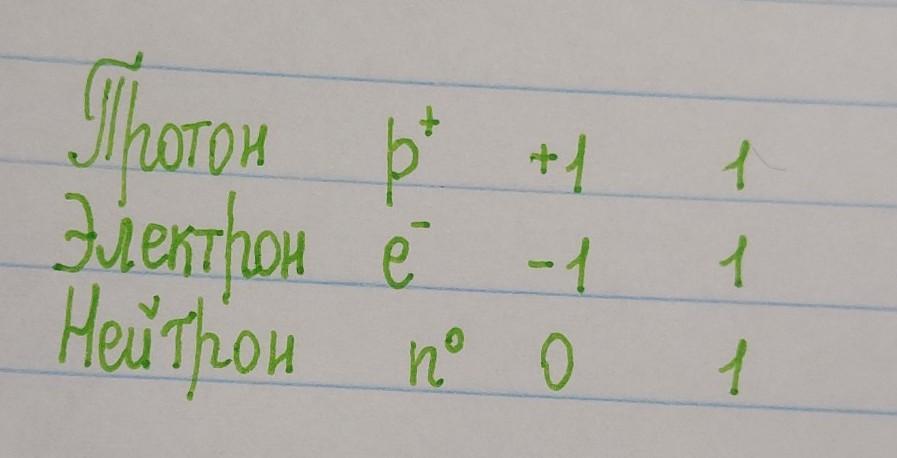 Протон p⁺ +1 1
Электрон e⁻ -1 1
Нейтрон n⁰ 0 1